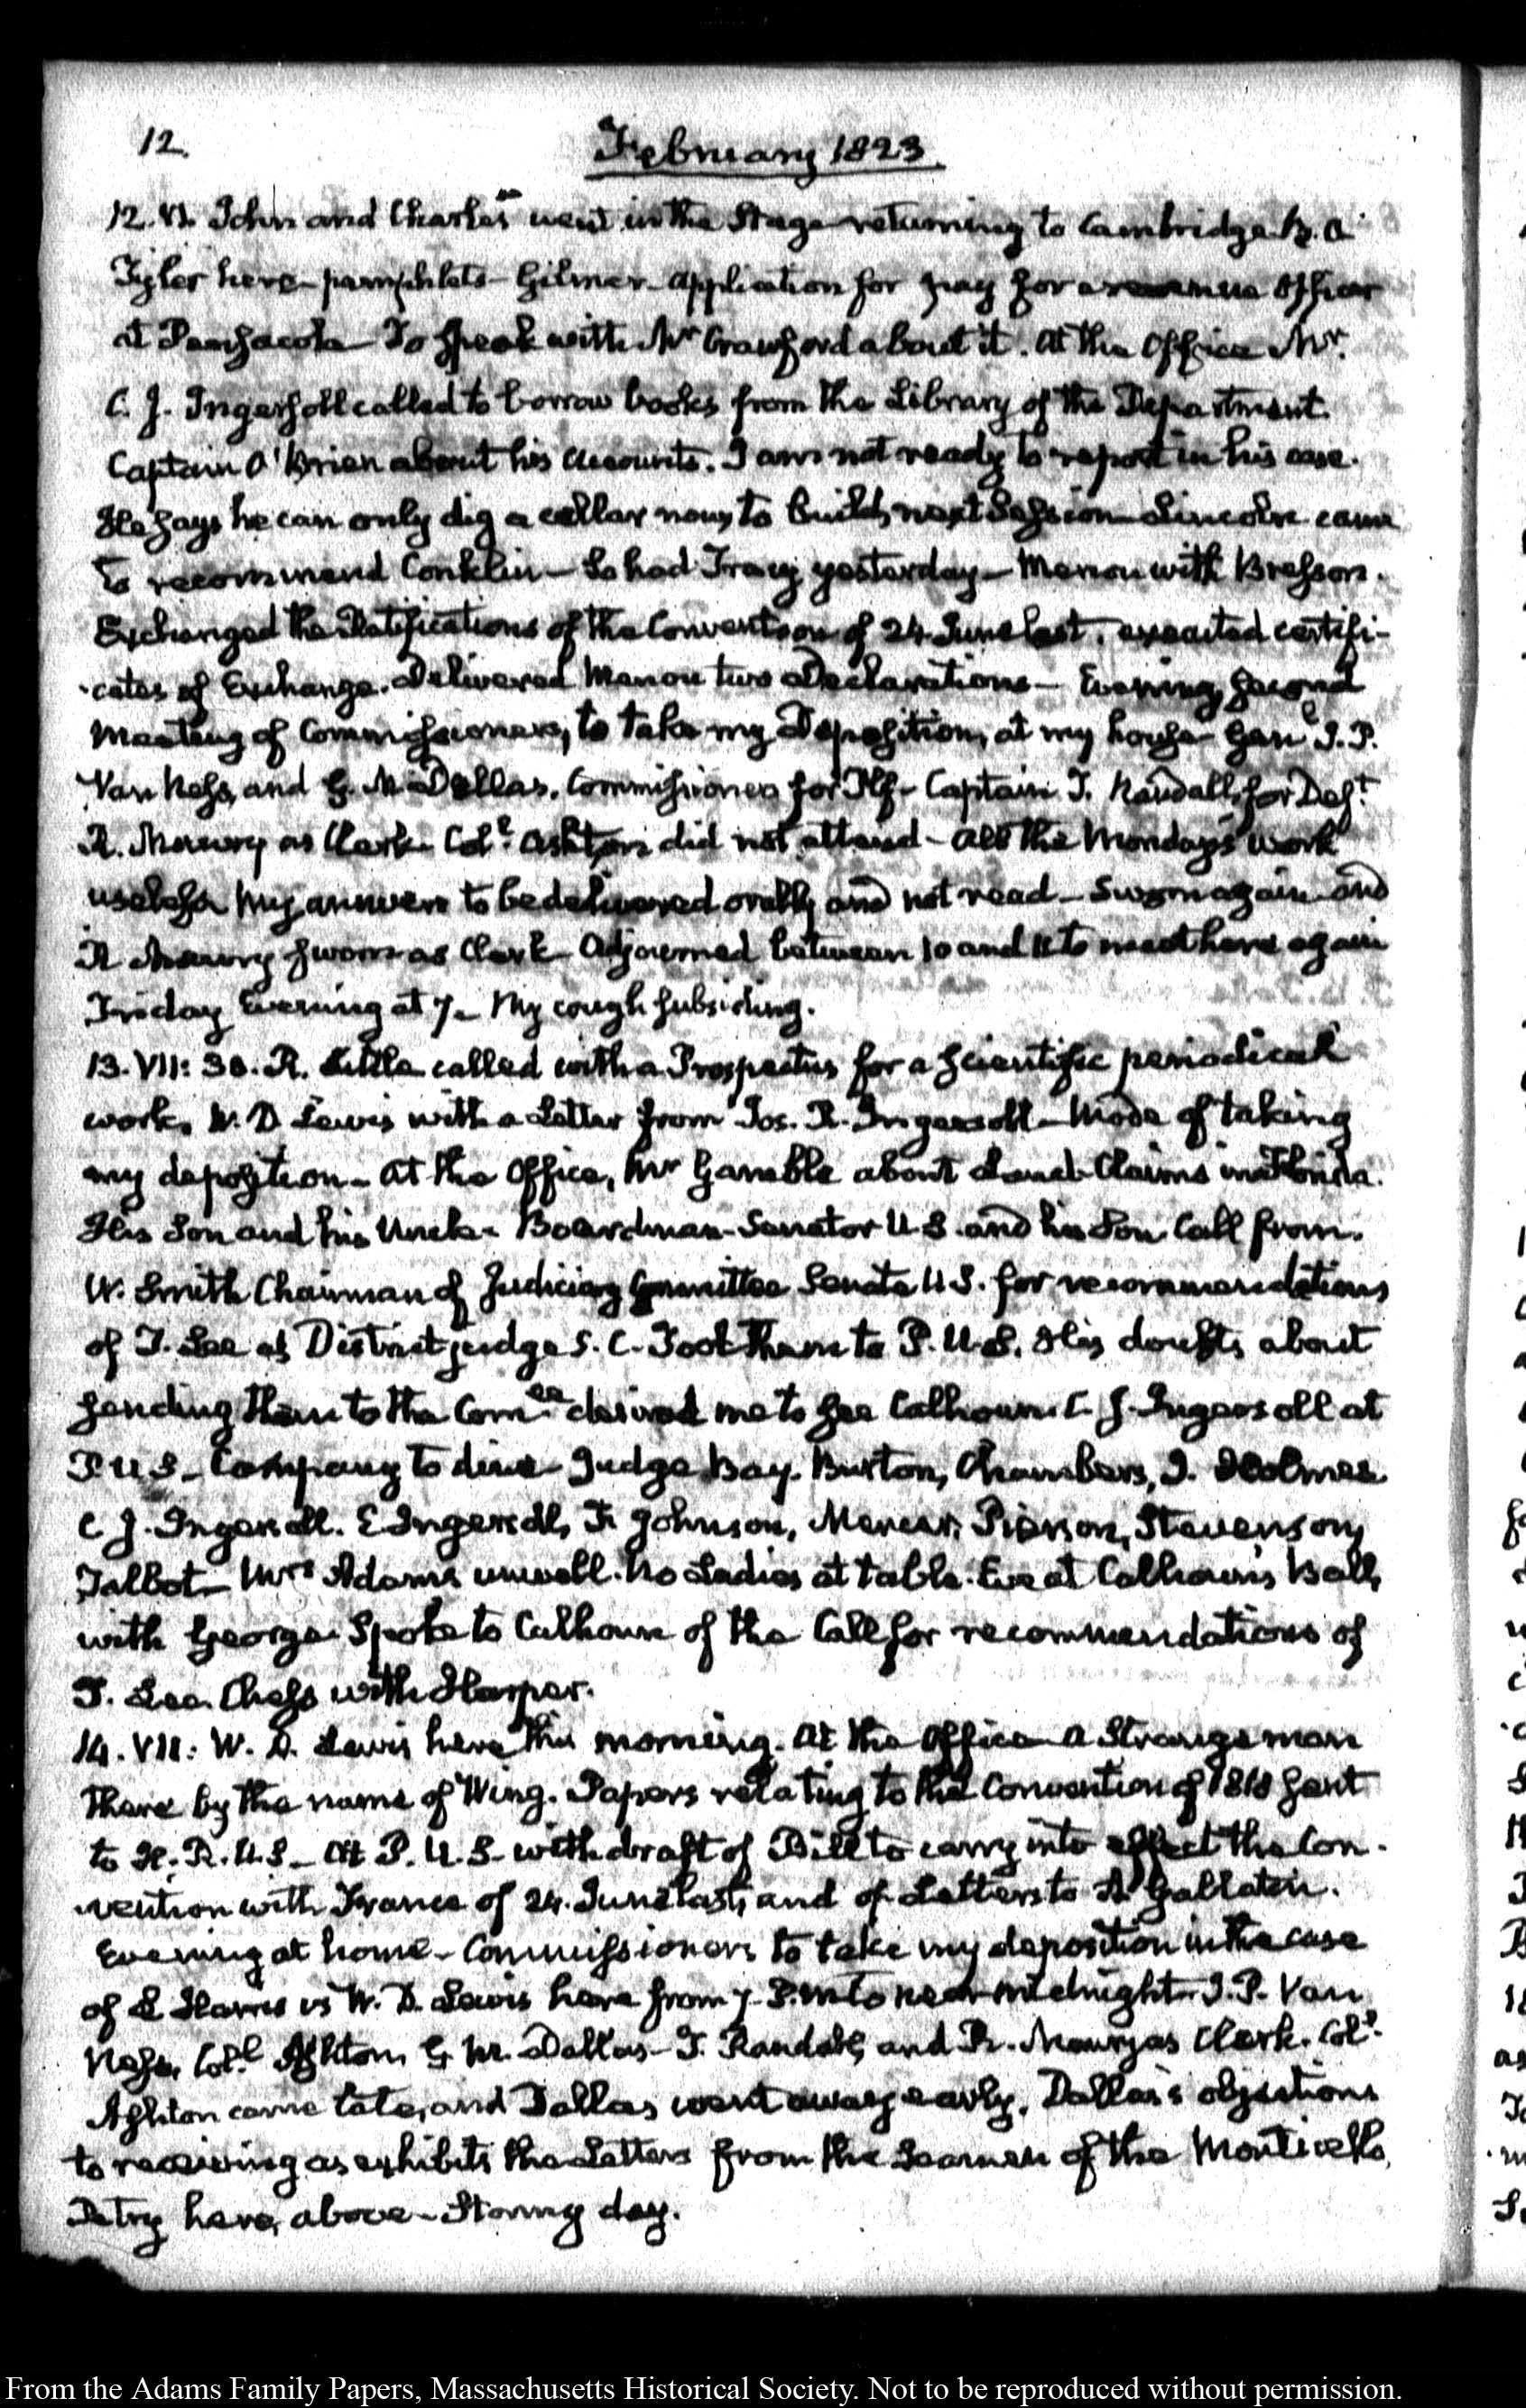 12.
February 1823.
12. VI. John and Charles went in the Stage returning to Cambridge. B. O
Tyler here - pamphlets - Gilmer - Application for pay for a revenue Officer
at Pensacola - To speak with Mr Crawford about it. At the Office Mr.
C. J. Ingersoll called to borrow books from the Library of the Department.
Captain O'Brien about his Accounts. I am not ready to report in his case.
He says he can only dig a cellar now, to build, next Session - Lincoln came
to recommend Conklin - So had Tracy yesterday - Menou with Bresson.
Exchanged the Ratifications of the Convention of 24. June last. executed certifi-
-cates of Exchange. Delivered Menou two Declarations - Evening, second
Meeting of Commissioners, to take my Deposition, at my house - Genl J. P.
Van Ness, and G. M. Dallas, Commissioners for Plf - Captain T. Randall, for Deft
R. Maury as Clerk. Coll. Ashton did not attend - All the Monday's work
useless. My answers to be delivered orally and not read - Sworn again and
R Maury sworn as Clerk - Adjourned between 10 and 11 to meet here again
Friday Evening at 7 - My cough subsiding.
13. VII: 30. R. Little called with a Prospectus for a scientific periodical
work. W. D Lewis with a Letter from Jos. R. Ingersoll - Mode of taking
my deposition - At the Office, Mr Gamble about Land Claims in Florida.
His Son and his Uncle - Boardman - Senator U.S. and his Son. Call from
W. Smith Chairman of Judiciary Committee Senate U.S. for recommendations
of T. Lee as District judge S. C. Took them to P. U.S. His doubts about
sending them to the Comee desired me to see Calhoun. C. J. Ingersoll at
P. U S - Company to dine - Judge Bay. Burton, Chambers, J. Holmes
C J. Ingersoll. E Ingersoll, F. Johnson, Mercer, Pierson, Stevenson,
Talbot - Mrs Adams unwell. No Ladies at table. Eve at Calhoun's Ball,
with George. Spoke to Calhoun of the Call for recommendations of
T. Lee. Chess with Harper.
14. VII: W. D. Lewis here this morning. At the Office a Strange man
there by the name of Wing. Papers relating to the Convention of 1818 sent
to H. R. U.S - At P. U. S. with draft of Bill to carry into effect the Con-
-vention with France of 24. June last, and of Letters to A Gallatin.
Evening at home - Commissioners to take my deposition in the case
of L Harris vs W. D. Lewis here from 7. P. M to near midnight - J. P. Van
Ness, Coll. Ashton, G. M. Dallas - T. Randall, and R. Maury as Clerk. Coll.
Ashton came late, and Dallas went away early. Dallas's objections
to receiving as exhibits the Letters from the Seamen of the Monticello.
Petry here, above - Stormy day.
From the Adams Family Papers, Massachusetts Historical Society. Not to be reproduced without permission.